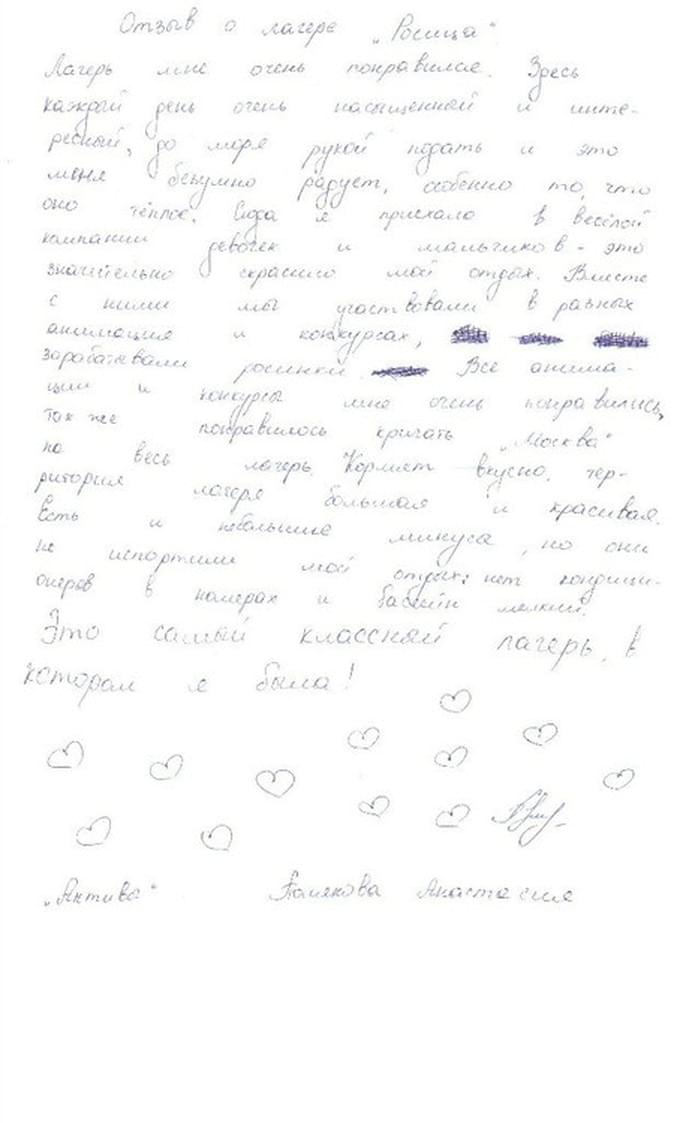 Отзыв о лагере „Росица“
Лагерь мне очень понравился. Здесь
каждый день очень насыщенной и инте-
ресный, до моря рукой подать и это
меня безумно радует, особенно то, что
оно тёплое. Сюда я приехала в весёлой
компании девочек и мальчиков - это
значительно скрасило мой отдых. Вместе
с ними мы участвовали в разных
анимация и конкурсах,
зарабатывали росинки. Все анима-
ции и конкурсы мне очень понравились,
так же понравилось кричать „Москва“
на весь лагерь. Кормят вкусно, тер-
ритория лагеря большая и красивая.
Есть и небольшие минуса, но они
не испортили мой отдых: нет кондици-
онеров в номерах и бассейн мелкий.
Это самый классный лагерь, в
котором я была!
„Актива“ Анастасия